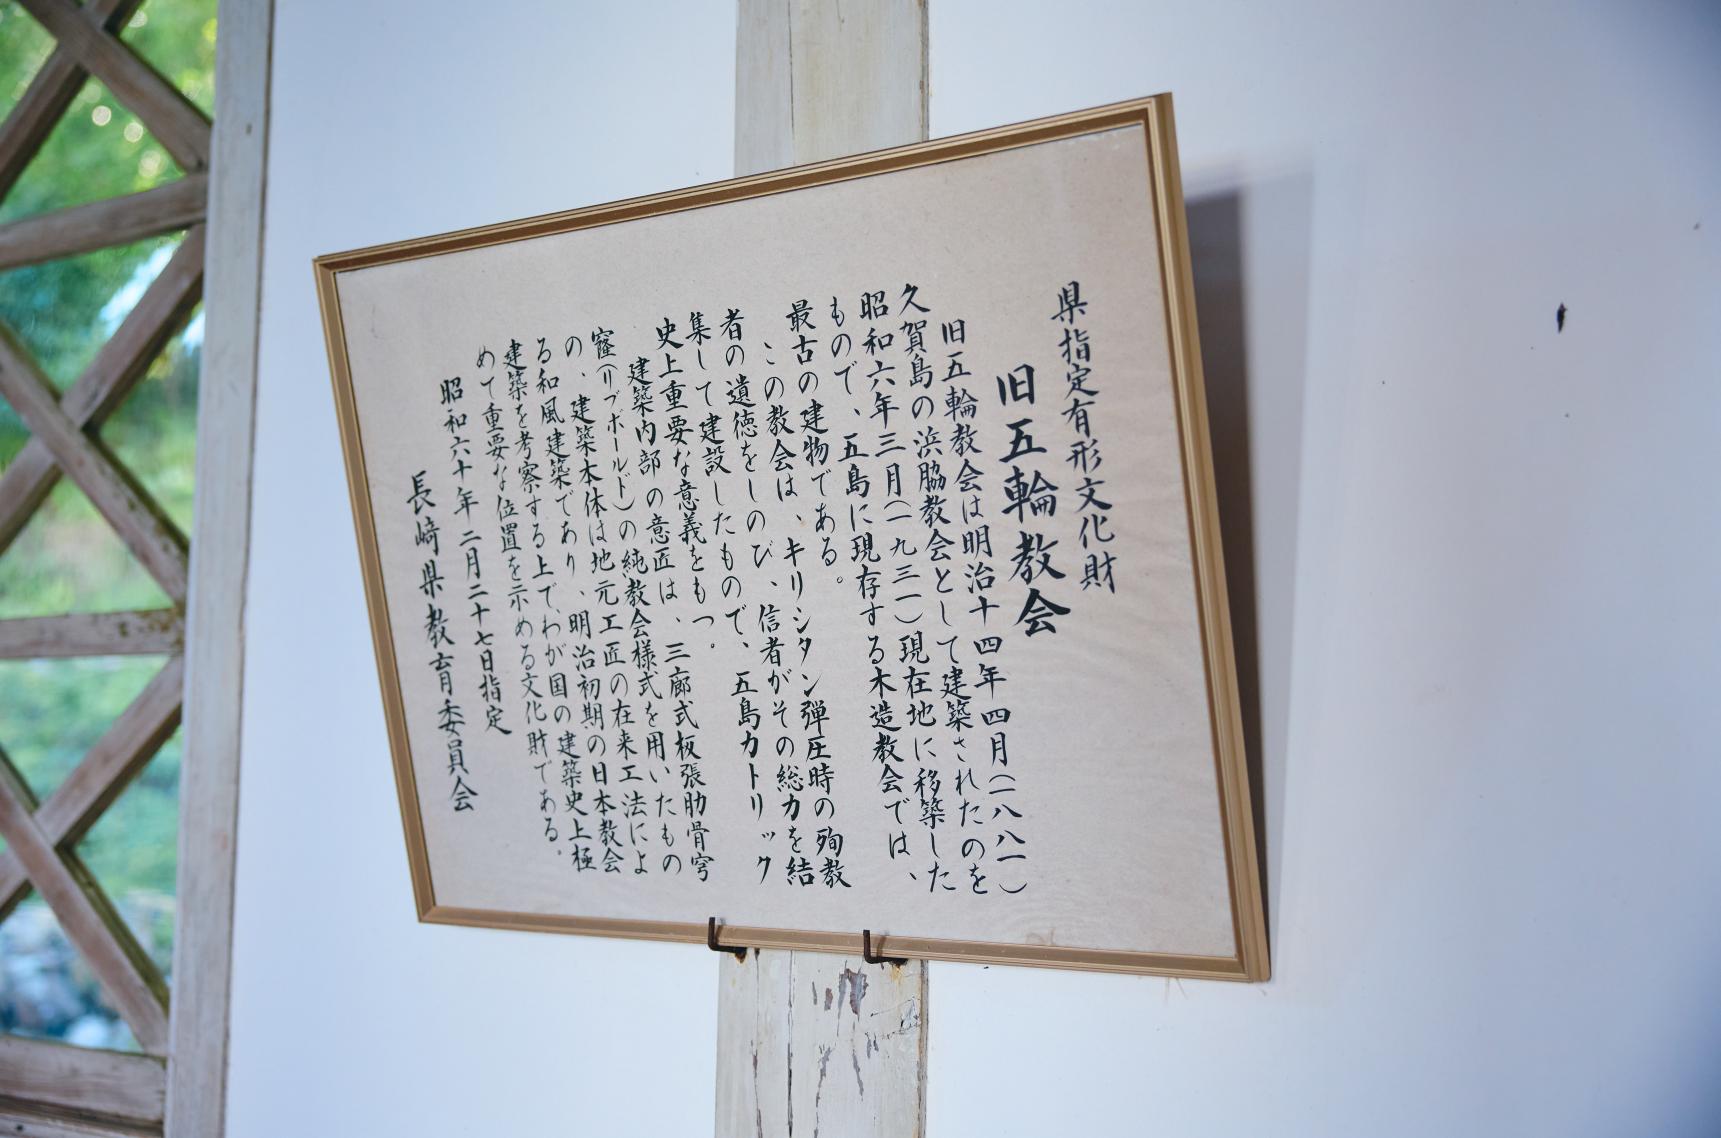 県指定有形文化財
旧五輪教会
旧五輪教会は明治十四年四月(一八八一)
久賀島の浜脇教会として建築されたのを
昭和六年三月(一九三一)現在地に移築した
もので、五島に現存する木造教会では、
最古の建物である。
この教会は、キリシタン弾圧時の殉教
者の遺徳をしのび、信者がその総力を結
集して建設したもので、五島カトリック
史上重要な意義をもつ。
建築内部の意匠は、三廊式板張肋骨穹
窿(リブボールド)の純教会様式を用いたもの
の、建築本体は地元工匠の在来工法によ
る和風建築であり、明治初期の日本教会
建築を考察する上でわが国の建築史上極
めて重要な位置を示める文化財である。
昭和六十年二月二十七日指定
長崎県教育委員会